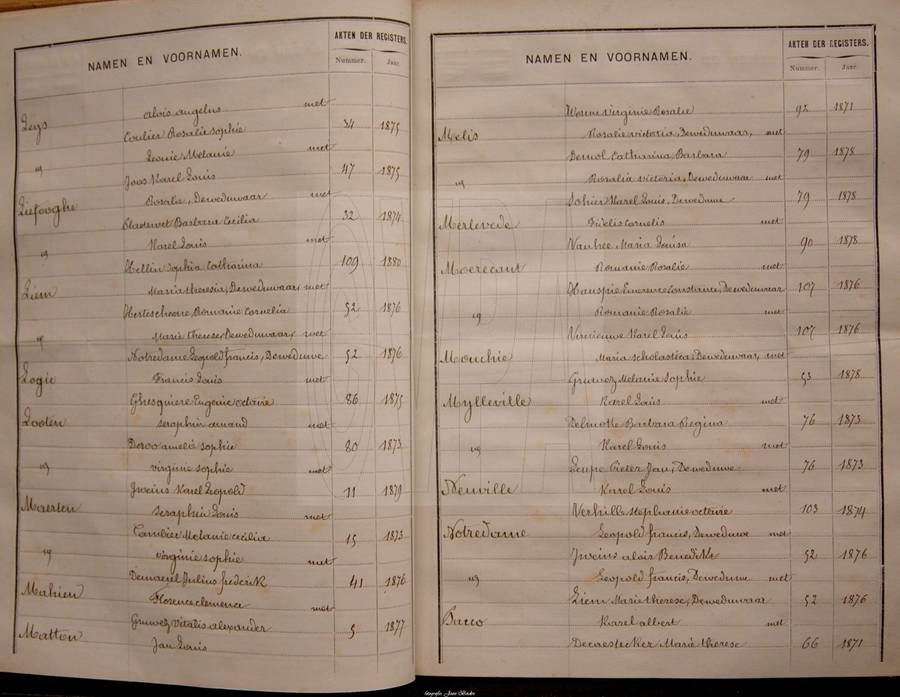 NAMEN EN VOORNAMEN.
AKTEN DER REGISTERS.
Nummer. Jaar.
alois angelus met
Leys
Coulier Rosalie sophie 34 1875
Leonie Melanie met
"
Joos Karel Louis 47 1875
Rosalie, Deweduwaar met
Liefooghe
Barbara Cecilia 32 1874
Karel Louis met
"
Hellin Sophia Catharina 109 1880
Maria theresia, Deweduwaar, met
Liem
Romanie Cornelia 52 1876
Marie Therese, Deweduwaar, met
"
Notredame Leopold francis, Deweduwe 52 1876
Logie
Francis Louis met
Ghesquiere Eugenie octavie 86 1875
Looten
seraphin amand met
Deroo amelie sophie 80 1873
"
virginie sophie met
Jweins Karel Leopold 11 1879
Maerten
seraphin Louis met
Camelier Melanie cecilia 15 1873
"
virginie sophie met
Julius frederik 41 1876
Mahieu
Florence clemena met
Gruwez Vitalis alexander 5 1877
Matton
Jan Louis
NAMEN EN VOORNAMEN.
AKTEN DER REGISTERS.
Nummer. Jaar.
Virginie Rosalie 92 1871
Melis
Rosalie victoria, Deweduwaar, met
Demol Catharina, Barbara 79 1878
"
Rosalia victoria, Deweduwaar met
Sohier Karel Louis, Deweduwe 79 1878
Merlevede
Fidelis Cornelis met
Vanhee Maria Louisa 90 1878
Moerecant
Romanie Rosalie met
Emerence Constance, Deweduwaar 107 1876
"
Romanie Rosalie met
Karel Louis 107 1876
Mouchie
Maria scholastica, Deweduwaar, met
Gruwez Melanie Sophie 53 1878
Mylleville
Karel Louis met
Delmotte Barbara Regina 76 1873
"
Karel Louis met
Leupe Pieter Jan, Deweduwe 76 1873
Neuville
Karel Louis met
Verhille stephanie octavie 103 1874
Notredame
Leopold francis, Deweduwe met
Jweins alois Benedikt 52 1876
"
Leopold francis, Deweduwe met
Liem Marie therese, Deweduwaar 52 1876
Bacco
Karel albert met
Decaestecker Marie therese 66 1871